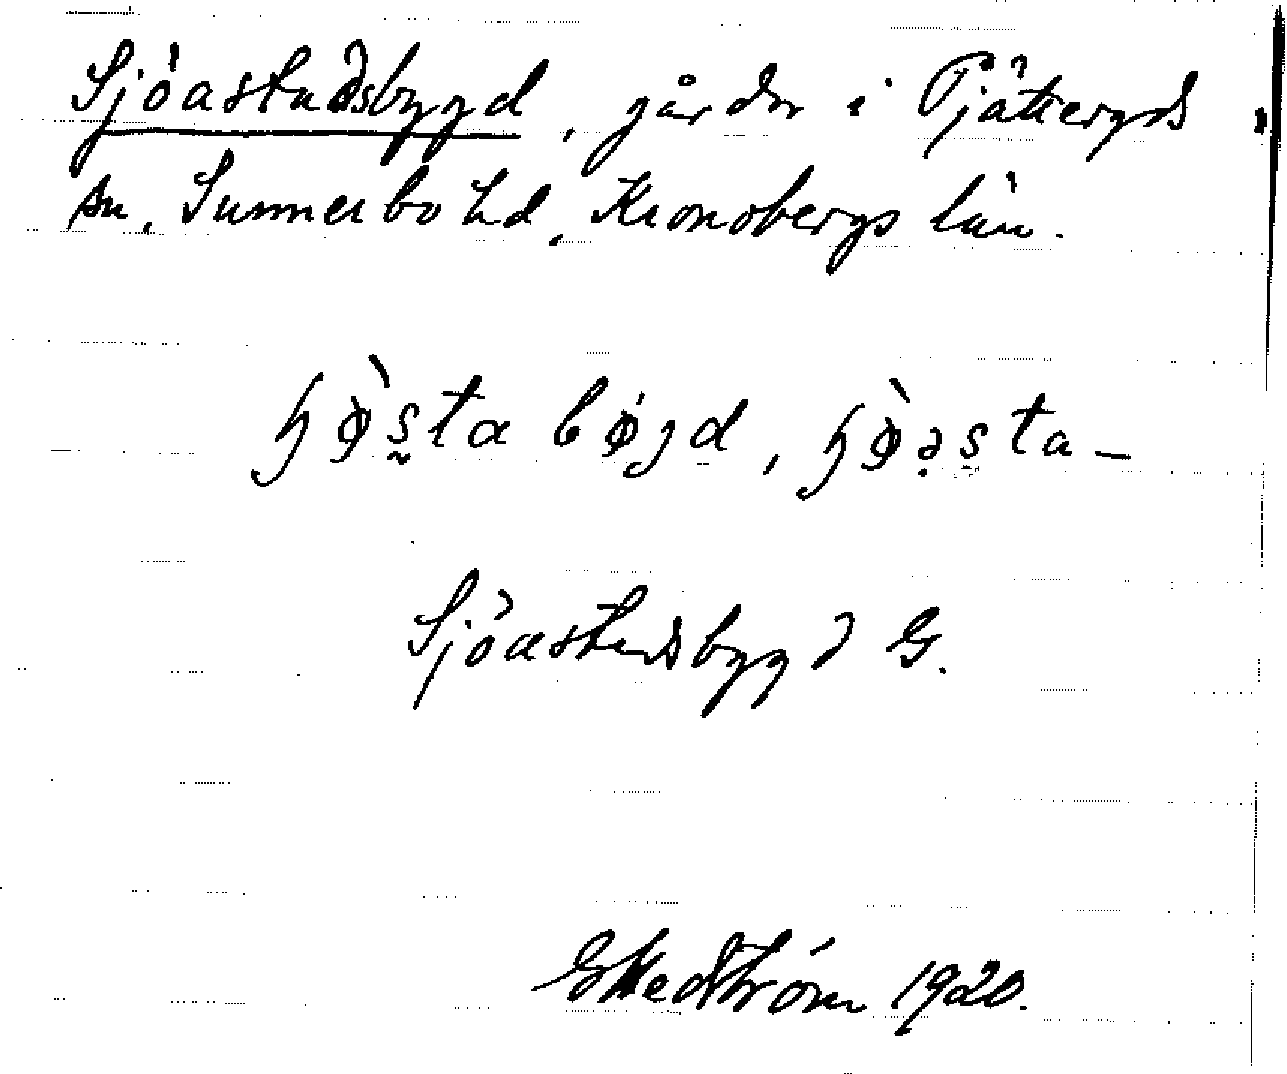 Sjöastadsbygd, gårdar i Pjätteryds
sn, Sunnerbo hd, Kronobergs län.
Sjöastadsbygd G.
G Hedström 1920.